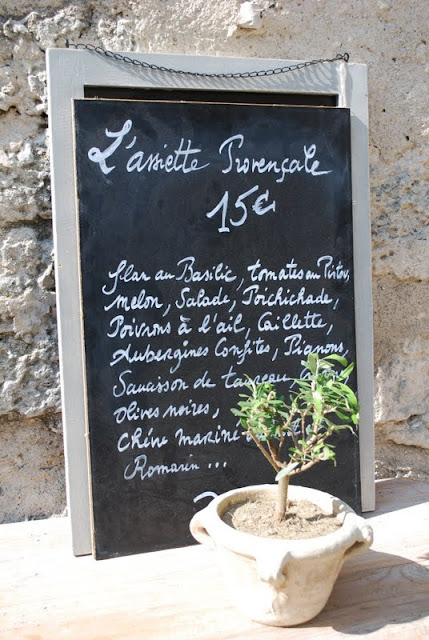 L'assiette Provençale
15€
flan au Basilic, tomates au Pistou,
Melon, Salade, Poichichade,
Poivrons à l'ail, Caillette,
Aubergines Confites, Pignons,
Saucisson de taureau,
olives noires,
chèvre mariné
Romarin ...